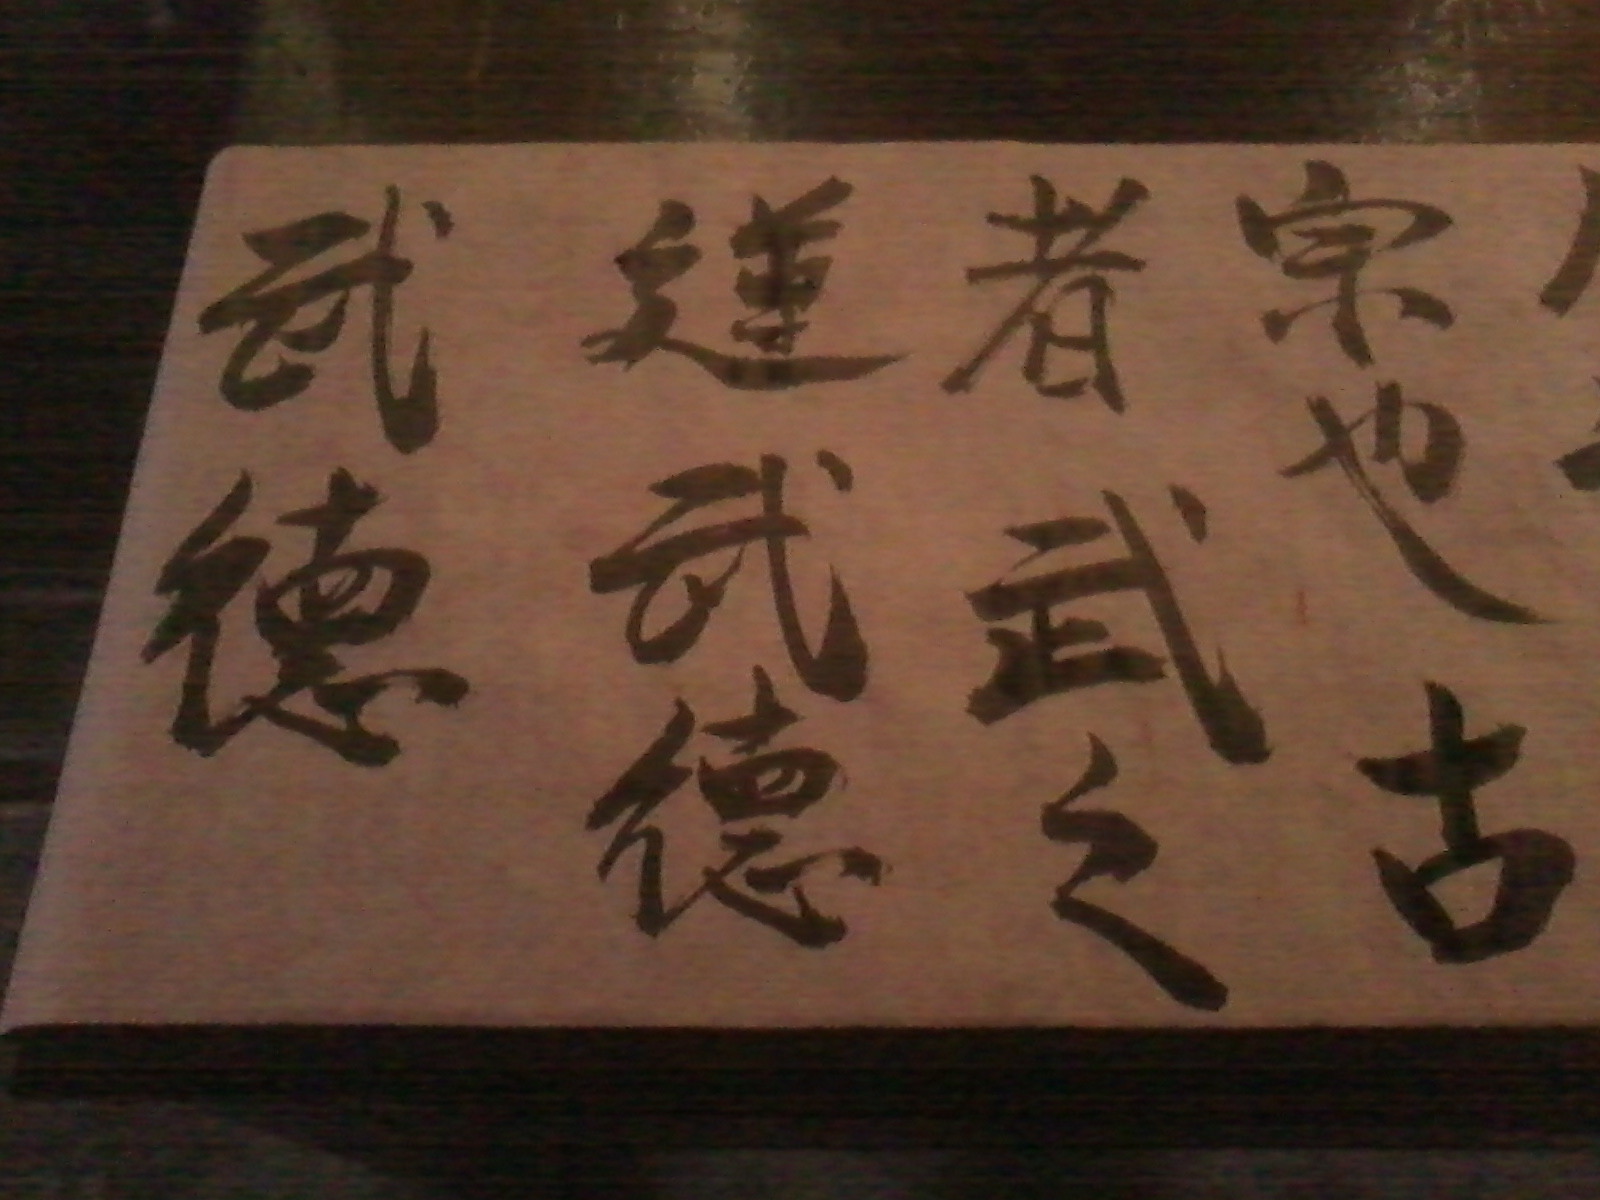 宗也古
者武之
道武德
武德